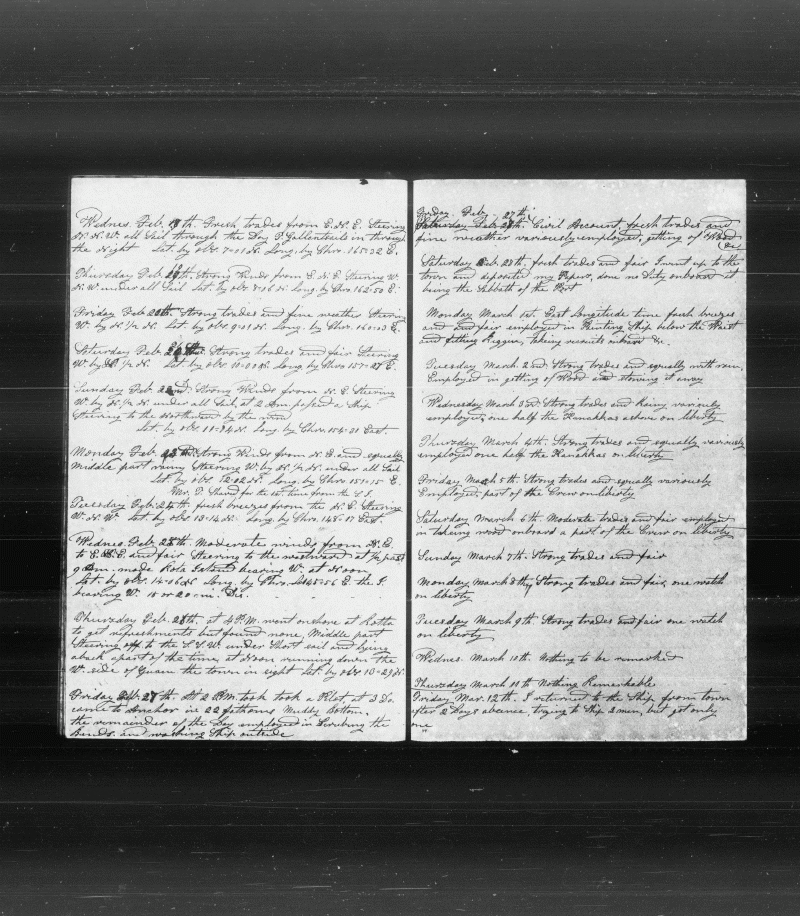 Wednes. Feb. 18th. Fresh trades from E.N.E. Steering
N.N.W. all Sail through the Day T. Gallantsails in through
the Night Lat. by obs. 7=01 N. Long. by Chro. 165=32 E.
Thursday Feb. 19th. Strong Winds from E.N.E. Steering W.
N.W. under all Sail Lat. by obs. Long. by Chro. 162=50 E.
Friday Feb. 20th. Strong trades and fine weather Steering
W. by N. 1/2 N. Lat. by obs. 9=01 N. Long. by Chro. 160=13 E.
Saturday Feb. Strong trades and fair Steering
W. by N. 1/2 N. Lat. by obs. Long. by Chro. 157=27 E.
Sunday Feb. 22nd. Strong Winds from N. E. Steering
W. by N. 1/2 N. under all Sail, at 2 Am. passed a Ship
Steering to the Northward by the wind
Lat. by obs. 11=24 N. Long. by Chro. 154=31 East.
Monday Feb. 23rd. Strong Winds from N. E. and equally
Middle part rainy Steering W. by N. 1/2 N. under all Sail
Lat. by obs. 12=02 N. Long. by Chro. 151=15 E.
Mr. P. Shaved for the 1st. time from the S.I.
Tuesday Feb. 24th. fresh breezes from the N. E. Steering
W.N.W. Lat. by obs. 13=14 N. Long. by Chro. 148=17 East.
Wednes. Feb. 25th. Moderate winds from N. E.
to E.N.E. and fair Steering to the westward at 1/2 past
9 Am. made Rota Island bearing W. at Noon
Lat. by obs. 14=06 N. Long. by Chro. 145=56 E. the I.
bearing W. 15 or 20 mi. Dis.
Thursday Feb. 26th. at 4 P.M. went onshore at Rotta
to get refreshments but found none, Middle part
Steering off to the S.S.W. under Short sail and lying
aback apart of the time, at Noon running down the
W. side of Guam the town in sight Lat. by obs. 13=29 N.
Friday Feb. 27th At 2 P.M. took took a Pilot, at 3 Do.
came to Anchor in 22 fathoms Muddy Bottom,
the remainder of the Day employed in Scrubing the
Bends, and washing Ship outside
Friday. Feb. 27th
Saturday Feb 28th. Civil Account, fresh trades and
fine weather variously employed, getting of Wood
&c
Saturday Feb. 28th. fresh trades and fair I went up to the
town and deposited my Papers, done no Duty onboard it
being the Sabbath of the Port
Monday March 1st. East Longitude time fresh breezes
and and fair employed in Painting Ship below the Waist
and fitting Riggin, taking recruits onboard &c.
Tuesday March. 2nd Strong trades and equally with rain,
Employed in getting of Wood and stowing it away
Wednesday March 3rd. Strong trades and Rainy variously
employed, one half the Kanakkas ashore on liberty
Thursday March 4th. Strong trades and equally variously
employed one half the Kanakkas on liberty
Friday March 5th. Strong trades and equally variously
Employed, part of the Crew on liberty
Saturday March 6th. Moderate trades and fair employed
in taking wood onboard a part of the Crew on liberty
Sunday March 7th. Strong trades and fair
Monday, March 8th, Strong trades and fair, one watch
on liberty
Tuesday March 9th. Strong trades and fair one watch
on liberty
Wednes. March 10th. Nothing to be remarked
Thursday March 11th Nothing Remarkable
Friday Mar. 12th. I returned to the Ship from town
after 2 Days absence, trying to Ship 2 men, but got only
one